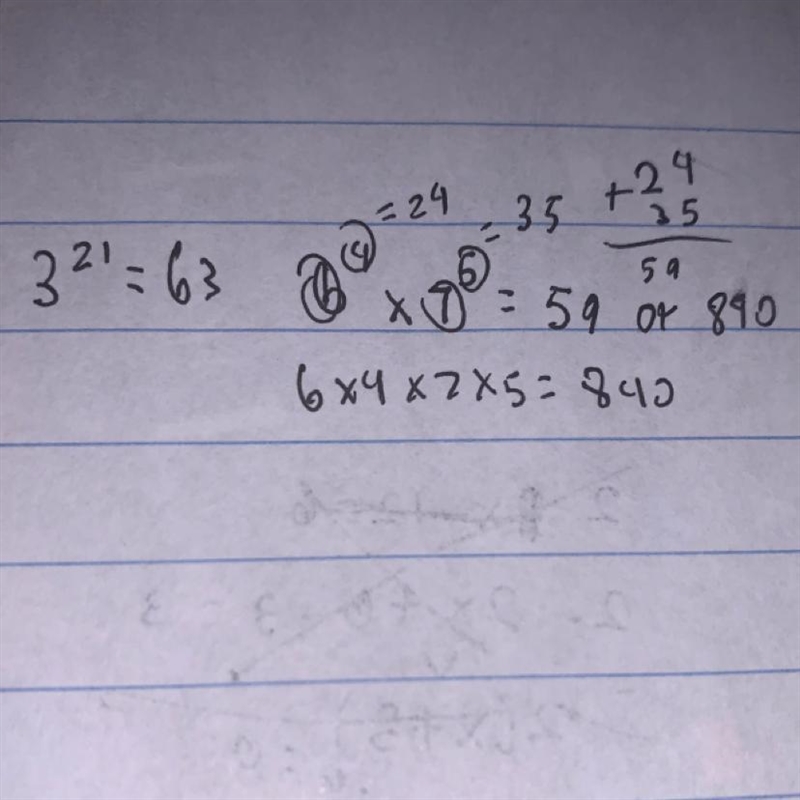 3²¹ = 63
6⁴ = 24 × 7⁵ = 35 = 59 or 840
+24
35
59
6 x 4 x 7 x 5 = 840